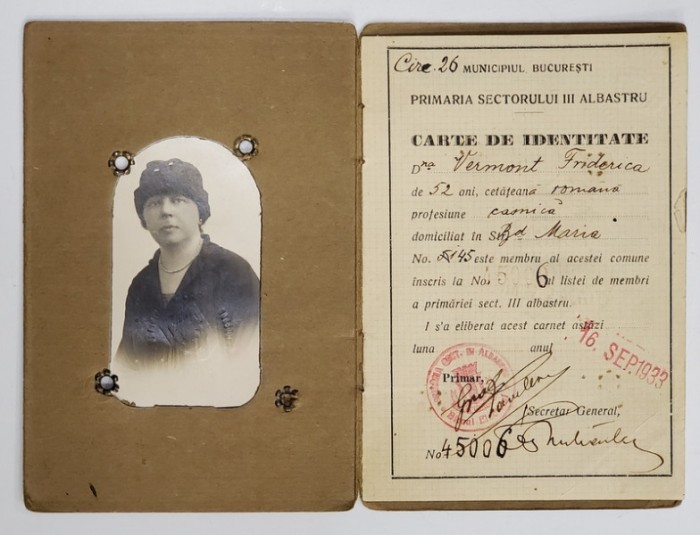 Circ. 26 MUNICIPIUL BUCUREȘTI
PRIMARIA SECTORULUI III ALBASTRU
CARTE DE IDENTITATE
Dna Vermont Friderica
de 52 ani, cetățeană română
profesiune casnică
domiciliat în Str. Bd Maria
No. 145 este membru al acestei comune
înscris la No. 5006 al listei de membri
a primăriei sect. III albastru.
I s'a eliberat acest carnet astăzi
luna anul
16. SEP. 1933
Primar,
Secretar General,
No 45006